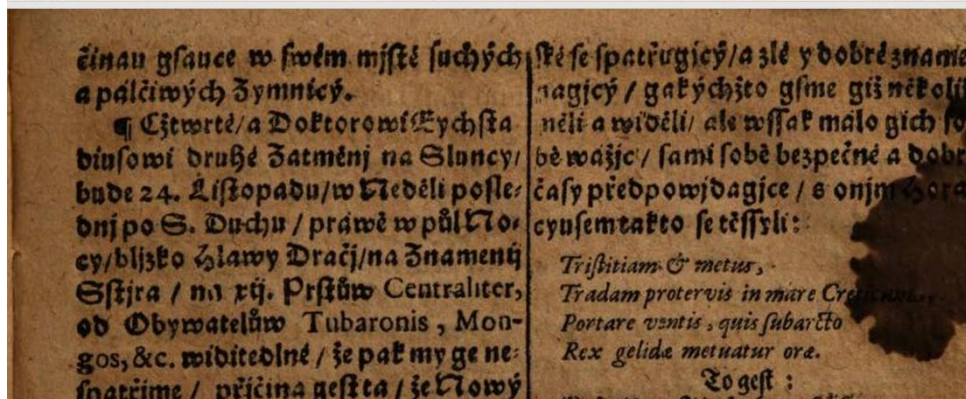 činau gsauce w swém mjstě suchých
a pálčiwých Zymnicý.
¶ Cžtwrté/a Doktorowi Eychsta
diusowi druhé Zatměnj na Sluncy/
bude 24. Listopadu/w Neděli posle-
dnj po S. Duchu / práwě w půl No-
cy/bljzko Hlawy Dračj/na Znamenij
Sstjra / na xij. Prstůw Centraliter,
od Obywatelůw Tubaronis, Mon-
gos, &c. widitedlné / že pak my ge ne-
spatřjme / přjčina gest ta / že Nowý
ské se spatřugjcý/a zlé y dobré zname
nagjcý / gakýchžto gsme giž několik
něli a widěli/ ale wssak málo gich so
bě wážjc / sami sobě bezpečné a dobr
časy předpowjdagjce / s onjm Hora
cyusemtakto se těssyli:
Tristitiam & metus,
Tradam protervis in mare Creticum
Portare ventis, quis sub arcto
Rex gelidæ metuatur oræ.
To gest :